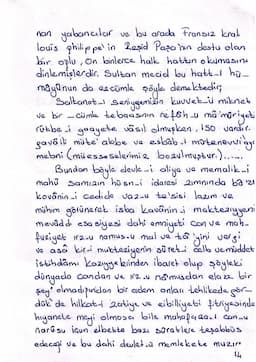 nan yabancılar ve bu arada Fransız kral
louis philippe'in Reşid Paşa'nın dostu olan
bir oğlu, On binlerce halk hattın okumasını
dinlemişlerdir. Sultan mecid bu hatt-ı hü-
mayûnun da ezcümle şöyle demektedir;
Saltanat-ı seniyyemizin kuvvet-i miknet
ve bir cümle tebaasının refâh-u mâ'mûriyeti
rütbe-i gaayete vâsıl olmuşken, 150 vardır.
gavâili müte'akıbe ve esbâb-ı mütenevvi'aya
mebni (müesseselerimiz bozulmuştur).....
Bundan böyle devlet-i aliyye ve memalik-i
mahû samızın hüsn-i idaresi zımnında ba'zı
kavânin-i cedide vaz-u te'sisi lazım ve
mühim görünerek işba kavânin-i mukteziyyenin
mevâdd esasiyesi dahi emniyeti can ve mah-
fuziyeti ırz-u namus-u mal ve tâ'yini vergi
ve asâ kiri mukteziyenin sûret-i celb ve müddet-i
istihdâmı kazıyyelerinden ibaret olup şöyleki
dünyada candan ve ırz-u nâmusdan elazz bir
şey olmadığından bir adem onları tehlikede gör-
dük'de hilkat-ı zatiye ve cibilliyeti fıtriyesinde
hıyanete meyl olmasa bile muhafaza-i can-u
narûsu için elbette bazı sûretlere teşebbüs
edeceği ve bu dahi devlet-u memlekete muzır
14